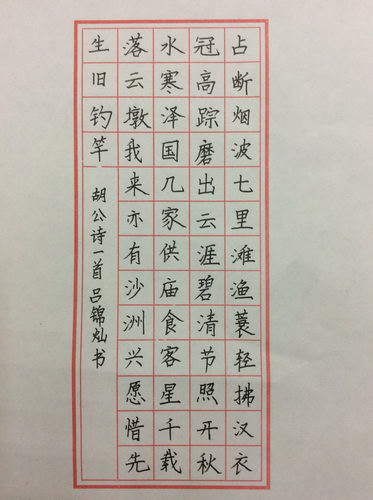 占断烟波七里滩渔蓑轻拂汉衣
冠高踪磨出云涯碧清节照开秋
水寒泽国几家供庙食客星千载
落云墩我来亦有沙洲兴愿惜先
生旧钓竿
胡公诗一首吕锦灿书